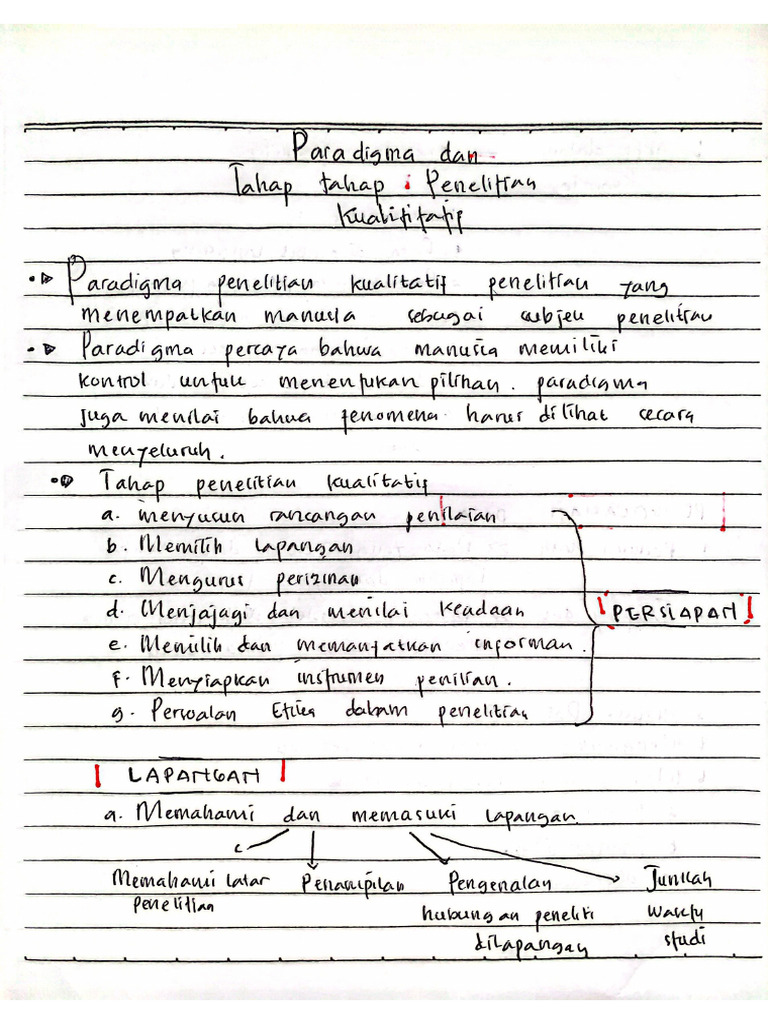 Paradigma dan
Tahap tahap Penelitian
Kualifitatif
Paradigma penelitian kualitatif penelitian yang
menempatkan manusia sebagai subjek penelitian
Paradigma percaya bahwa manusia memiliki
kontrol untuk menentukan pilihan. paradigma
juga menilai bahwa fenomena harus dilihat secara
menyeluruh.
Tahap penelitian kualitatif
a. menyusun rancangan penilaian
b. Memilih lapangan
c. Mengurus perizinan
d. Menjajagi dan menilai keadaan
PERSIAPAN
e. Memilih dan memanfatkan informan.
f. Menyiapkan instrumen penilian.
g. Persoalan Etika dalam penelitian
LAPANGAN
a. Memahami dan memasuki lapangan.
Memahami latar Penampilan Pengenalan Jumlah
penelitian hubungan peneliti waktu
dilapangan studi